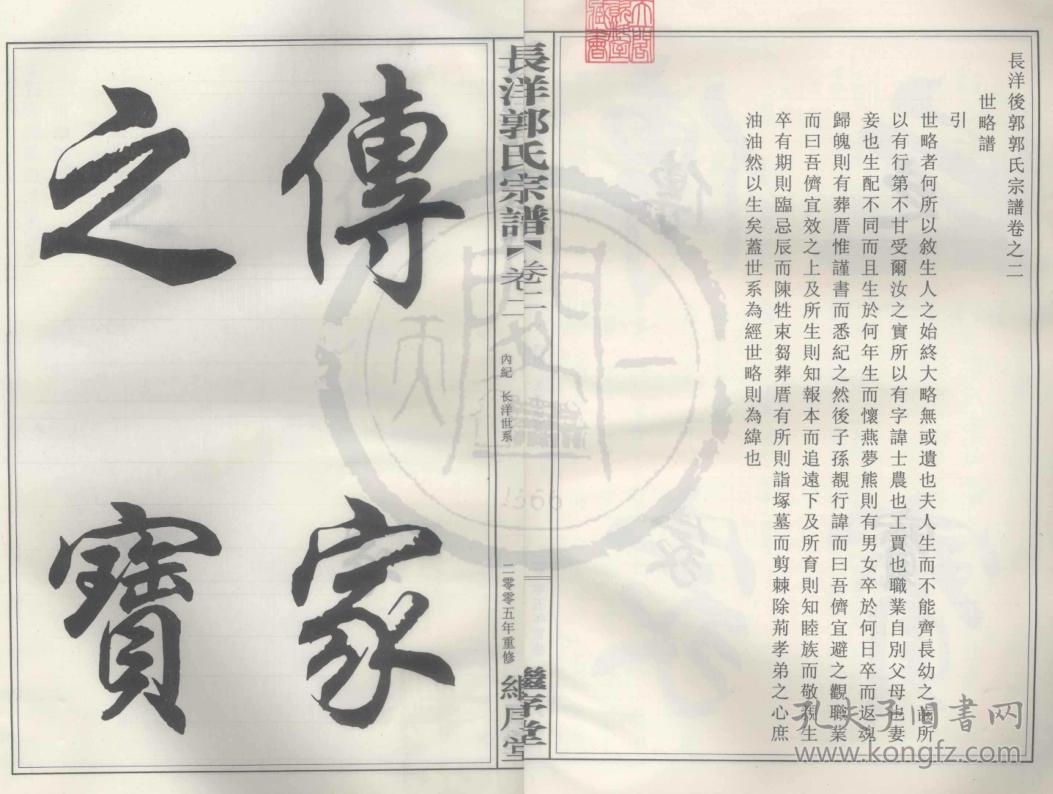 長洋後郭郭氏宗譜卷之二
世略譜
引
世略者何所以敘生人之始終大略無或遺也夫人生而不能齊長幼之齒所
以有行第不甘受爾汝之實所以有字諱士農也工賈也職業自別父母也妻
妾也生配不同而且生於何年生而懷燕夢熊則有男女卒於何日卒而返魂
歸魄則有葬厝惟謹書而悉紀之然後子孫覩行諱而曰吾儕宜避之觀職業
而曰吾儕宜效之上及所生則知報本而追遠下及所育則知睦族而敬親生
卒有期則臨忌辰而陳牲束芻葬厝有所則詣塚墓而剪棘除荊孝弟之心庶
油油然以生矣蓋世系為經世略則為緯也
長洋郭氏宗譜
卷二
內紀 长洋世系
二零零五年重修
繼序堂
傳家
之寶
孔夫子旧书网
www.kongfz.com
1566